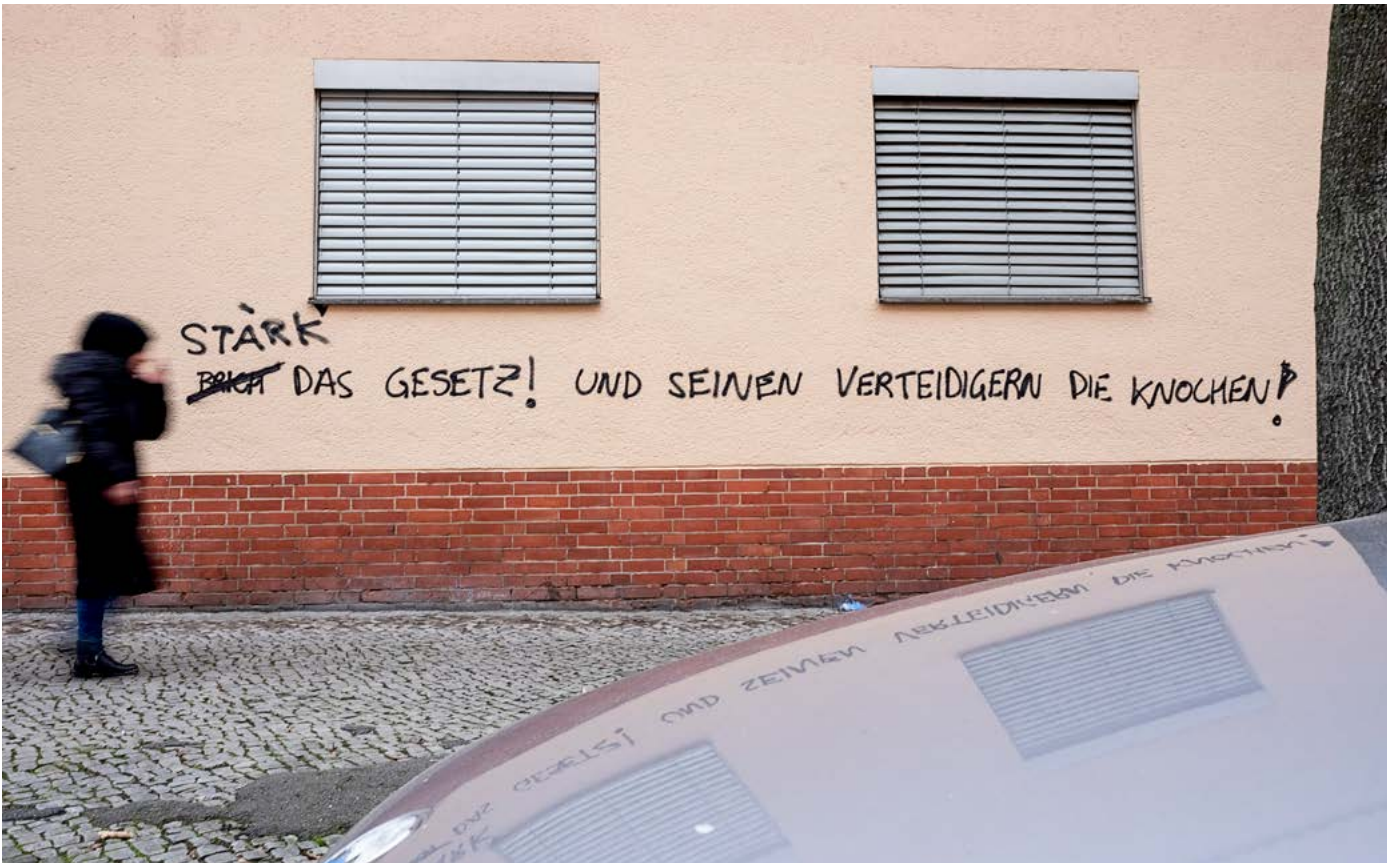 STÄRK
BRICH DAS GESETZ! UND SEINEN VERTEIDIGERN DIE KNOCHEN!